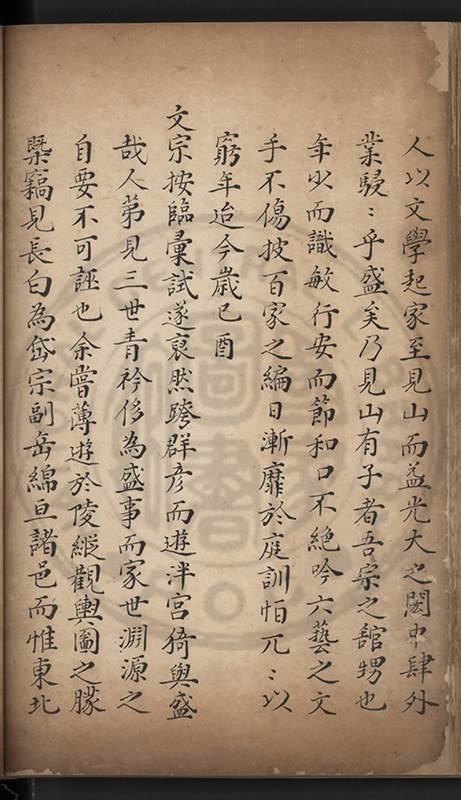 人以文學起家至見山而益光大之閎中肆外
業駸〻乎盛矣乃見山有子者吾宗之館甥也
年少而識敏行安而節和口不絶吟六藝之文
手不傷披百家之編日漸靡於庭訓怕兀〻以
窮年迨今歲己酉
文宗按臨彙試遂裒然跨群彦而遊泮宮猗與盛
哉人第見三世青衿侈為盛事而家世淵源之
自要不可誣也余嘗薄遊於陵縱觀輿圖之朦
槩竊見長白為岱宗副岳綿亘諸邑而惟東北